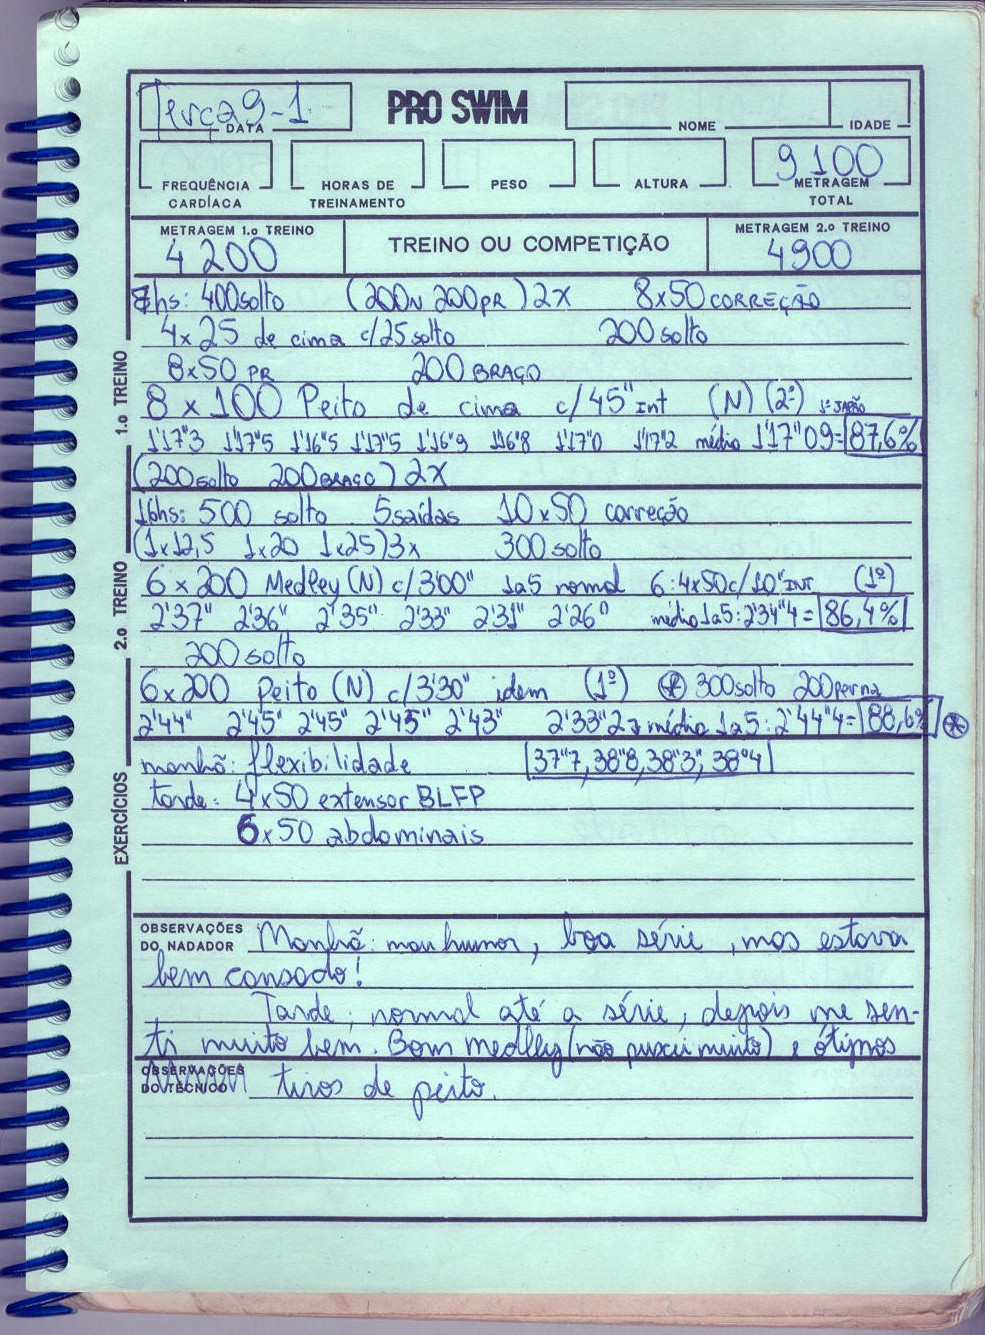 Terça 9-1.
DATA
PRO SWIM
NOME
IDADE
9100
FREQUÊNCIA CARDÍACA
HORAS DE TREINAMENTO
PESO
ALTURA
METRAGEM TOTAL
METRAGEM 1.º TREINO
4200
TREINO OU COMPETIÇÃO
METRAGEM 2.º TREINO
4900
1.º TREINO
7hs: 400 solto (200N 200PR) 2x 8x50 CORREÇÃO
4x25 de cima c/25 solto 200 solto
8x50 PR 200 BRAÇO
8 x 100 Peito de cima c/45" Int (N) (2º) 1º JAPÃO
1'17"3 1'17"5 1'16"5 1'17"5 1'16"9 1'16"8 1'17"0 1'17"2 média 1'17"09= 87,6%
(200 solto 200 BRAÇO) 2x
2.º TREINO
16hs: 500 solto 5 saídas 10x50 correção
(1x12,5 1x20 1x25)3x 300 solto
6 x 200 Medley (N) c/3'00" 1a5 normal 6: 4x50 c/10" INT (1º)
2'37" 2'36" 2'35" 2'33" 2'31" 2'26" média 1a5: 2'34"4= 86,4%
200 solto
6x200 Peito (N) c/3'30" idem (1º) * 300 solto 200 perna
2'44" 2'45" 2'45" 2'45" 2'43" 2'33"2 média 1a5: 2'44"4= 88,6% *
EXERCÍCIOS
manhã: flexibilidade 37"7, 38"8, 38"3, 38"4
tarde: 4x50 extensor BLFP
6x50 abdominais
OBSERVAÇÕES DO NADADOR
Manhã: mau humor, boa série, mas estava
bem cansado!
Tarde: normal até a série, depois me sen-
ti muito bem. Bom medley (não puxei muito) e ótimos
OBSERVAÇÕES DO TÉCNICO
tiros de peito.